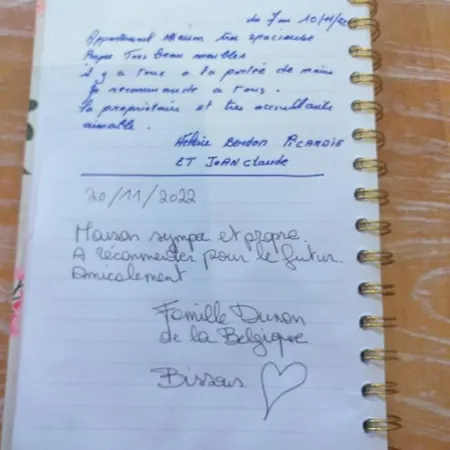 du 7 au 10/11/2
Appartement très spacieuse
Propre Tres Beau meubles
il y a tous a la porté de mains
Je recommande a tous.
la propriétaire et très accueillante
aimable.
Hélène PICARDIE
ET JEAN claude
20/11/2022
Maison sympa et propre.
A recommender pour le futur.
Amicalement
Famille Duron
de la Belgique
Bissous